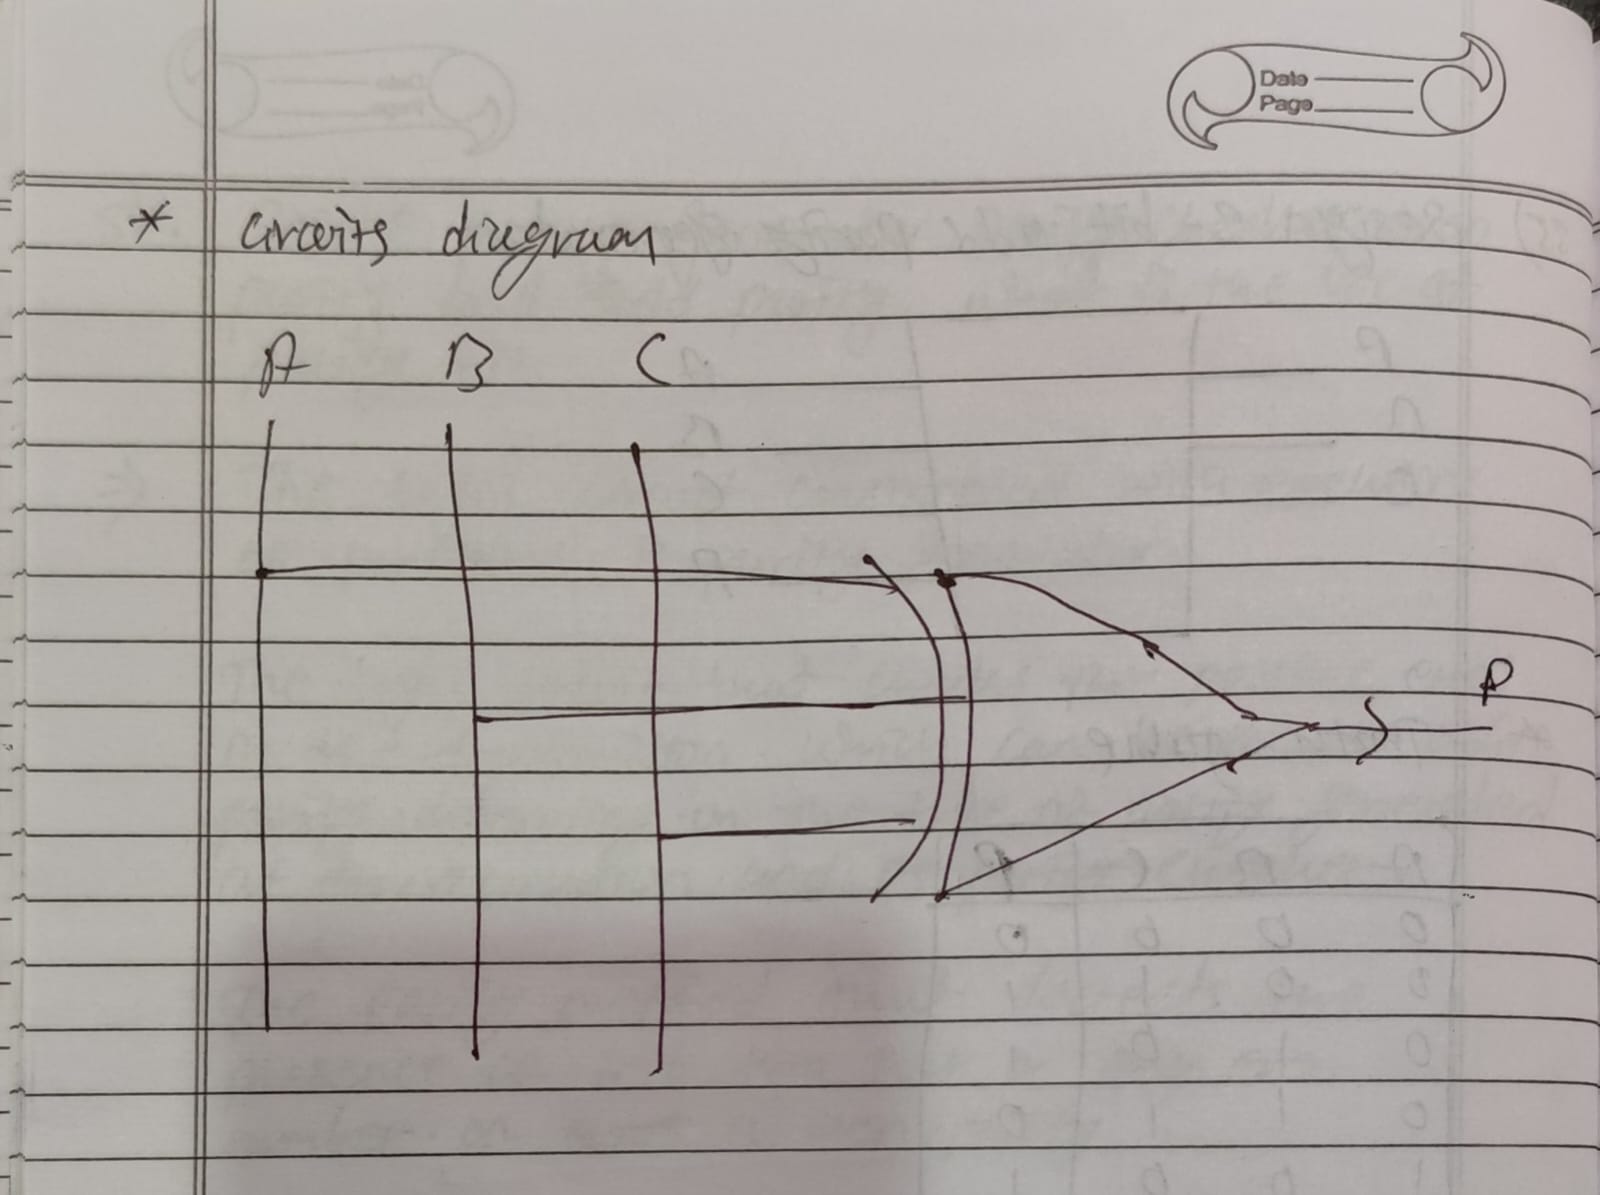 Date
Page
* circuits diagram
A B C
P